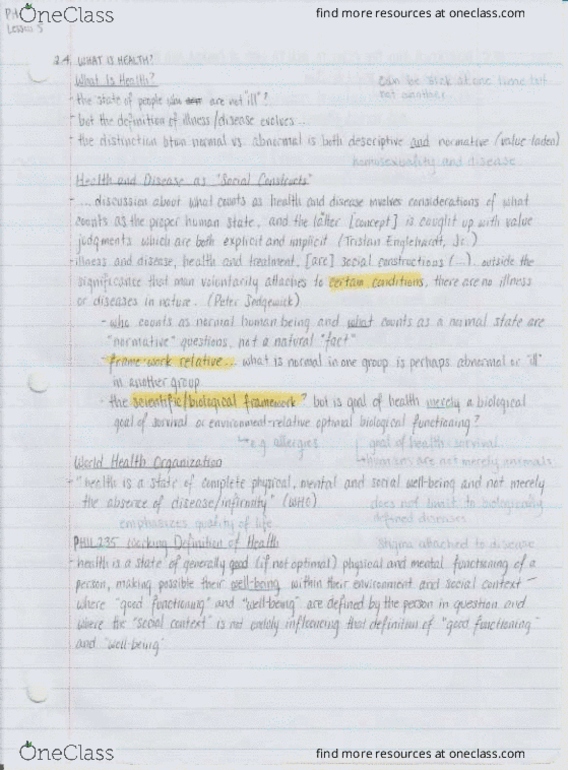 OneClass
find more resources at oneclass.com
Lesson 5
2.4 WHAT IS HEALTH?
What Is Health?
can be sick at one time but
not another
- the state of people who are not "ill"?
- but the definition of illness/disease evolves...
- the distinction btwn normal vs. abnormal is both descriptive and normative (value laden)
homosexuality and disease
Health and Disease as "Social Constructs"
- ... discussion about what counts as health and disease involves considerations of what
counts as the proper human state, and the latter [concept] is caught up with value
judgments which are both explicit and implicit (Tristan Englehardt, Jr.)
- illness and disease, health and treatment, [are] social constructions (...). outside the
significance that man voluntarily attaches to certain conditions, there are no illness
or diseases in nature. (Peter Sedgewick)
- who counts as normal human being and what counts as a normal state are
"normative" questions, not a natural "fact"
- frame-work relative... what is normal in one group is perhaps abnormal or "ill"
in another group
- the scientific/biological framework? but is goal of health merely a biological
goal of survival or environment-relative optimal biological functioning?
↳ e.g. allergies
goal of health: survival
↳ humans are not merely animals
World Health Organization
- "health is a state of complete physical, mental and social well-being and not merely
the absence of disease/infirmity" (WHO)
does not limit to biologically
defined diseases
emphasizes quality of life
stigma attached to disease
PHIL235 Working Definition of Health
- health is a state of generally good (if not optimal) physical and mental functioning of a
person, making possible their well-being within their environment and social context -
where "good functioning" and "well-being" are defined by the person in question and
where the "social context" is not unduly influencing that definition of "good functioning"
and "well-being"
OneClass
find more resources at oneclass.com